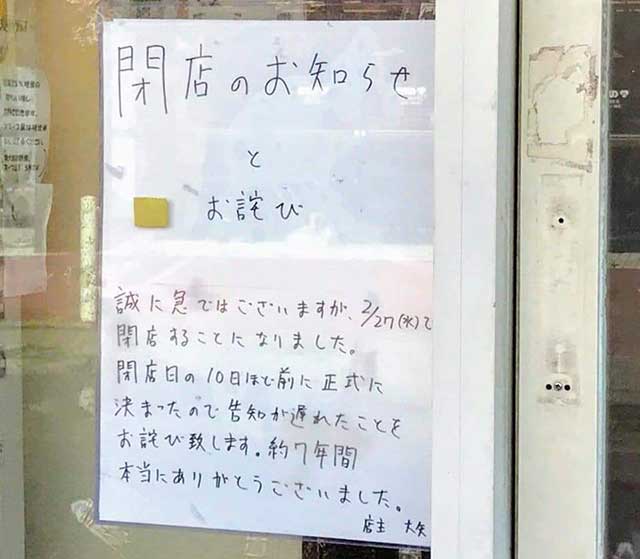 閉店のお知らせ
と
お詫び
誠に急ではございますが、2/27(水)で
閉店することになりました。
閉店日の10日ほど前に正式に
決まったので告知が遅れたことを
お詫び致します。約7年間
本当にありがとうございました。
店主 大矢